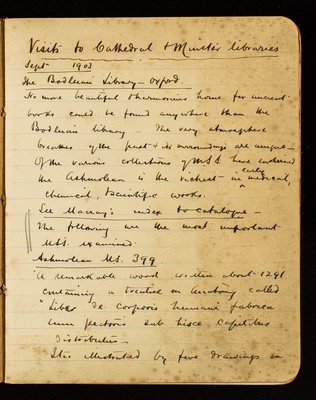 Visits to Cathedral & Minster libraries
Sept 1903
The Bodleian Library - Oxford.
No more beautiful & harmonious home for ancient
books could be found anywhere than the
Bodleian library - The very atmosphere
breathes of the past & its surroundings are unique -
Of the various collections of MSS here enshrined
the Ashmolean is the richest - in early medical,
chemical, & scientific works.
See Macray's index to catalogue -
The following are the most important
MSS. examined.
Ashmolean MS. 399
A remarkable work written about 1291
containing a treatise on Anatomy called
"Liber de corporis humani fabrica
cum pectoris sub hisce capitibus
Distributus -
It is illustrated by five drawings in